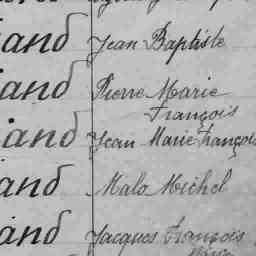 iand Jean Baptiste
iand Pierre Marie
François
iand Jean Marie François
iand Malo Michel
iand Jacques François